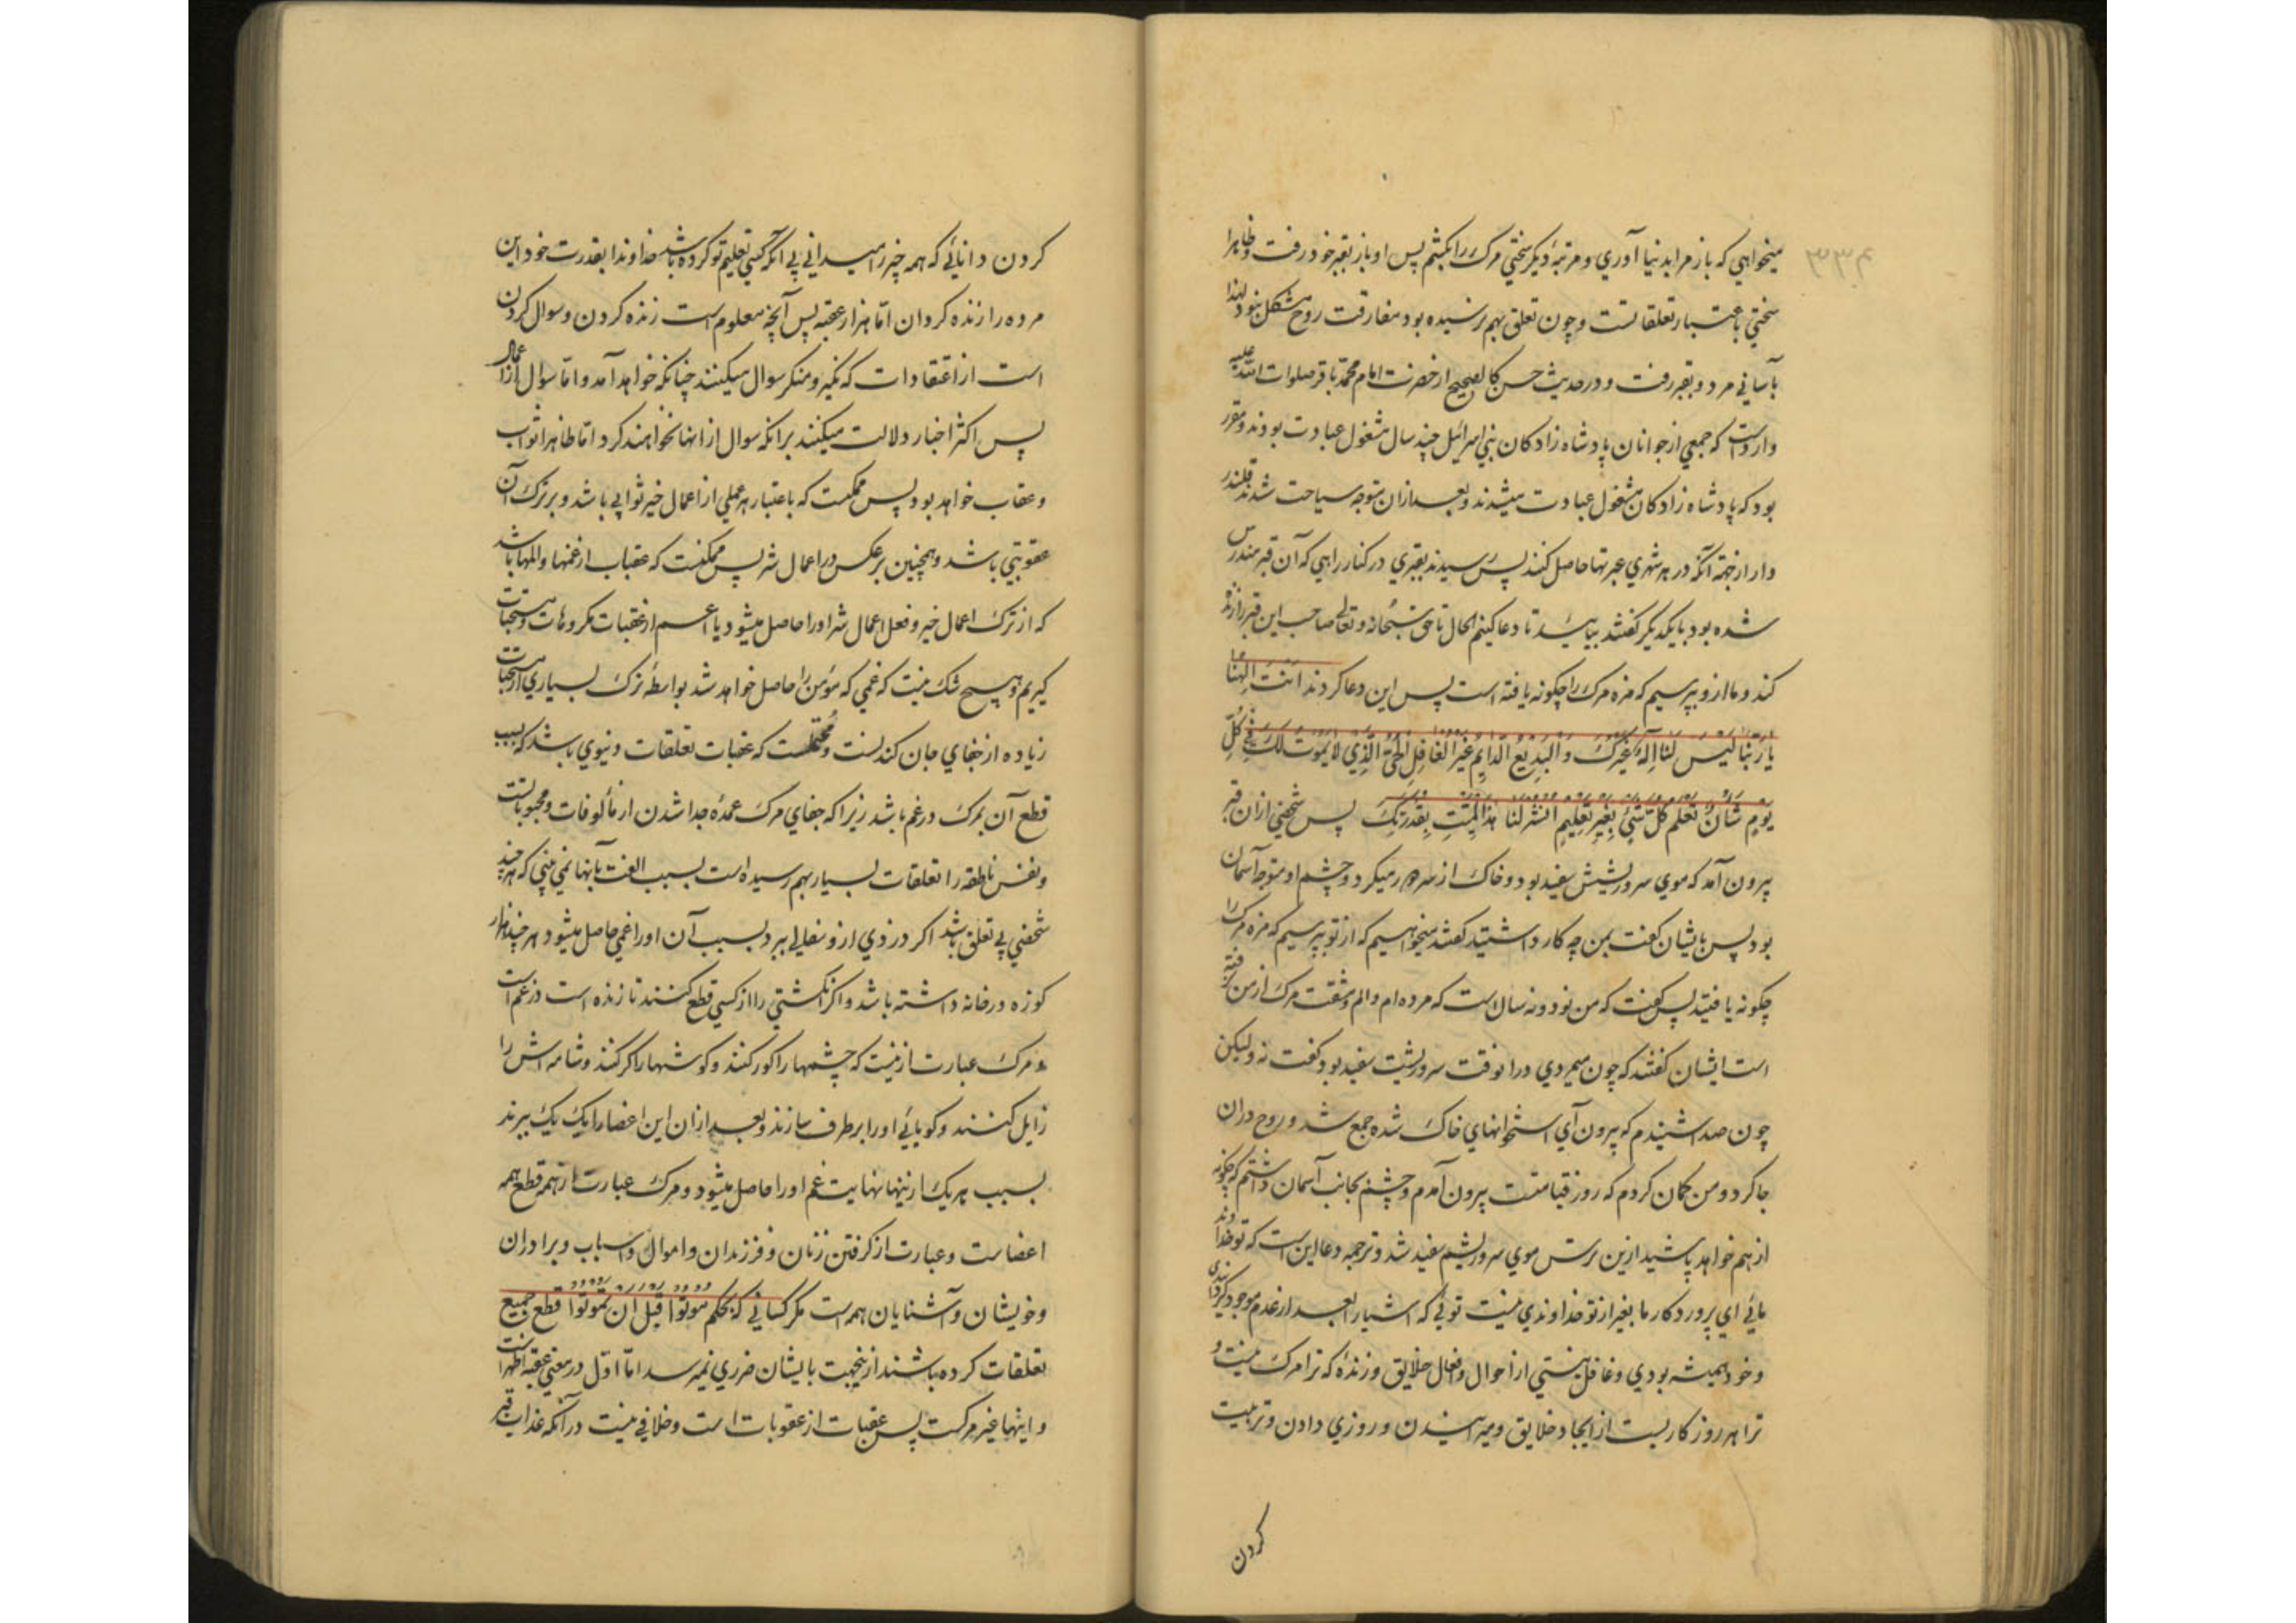 میخواهي که باز مرا بدنیا آوري و مرتبهٔ دیگر سختي مرک را بکشم پس او باز بقبر خود رفت و ظاهرا
سختي باعتبار تعلقاتست و چون تعلق بهم نرسیده بود مفارقت روح مشکل نبود لهذا
بآساني مرد و بقبر رفت و در حدیث حسن کالصحیح از حضرت امام محمد باقر صلوات الله علیه
واردست که جمعي از جوانان پادشاه زادکان بني اسرائیل چند سال مشغول عبادت بودند و مقرر
بود که پادشاه زادکان مشغول عبادت میشدند و بعد ازان متوجه سیاحت شدند قلندر
وار از جهة آنکه در هر شهري عبرتها حاصل کنند پس رسیدند بقبري در کنار راهي که آن قبر مندرس
شده بود با یکدیکر کفتند بیایید تا دعا کنیم الحال تا حق سبحانه و تعالی صاحب این قبر را زنده
کند و ما ازو بپرسیم که مزه مرک را چکونه یافته است پس این دعا کردند انت الهنا
یا ربنا لیس لنا اله غیرک و البدیع الدایم غیر الغافل الحي الذي لا یموت لک في کل
یوم شان تعلم کل شيء بغیر تعلیم انشر لنا هذا المیت بقدرتک پس شخصي ازان قبر
بیرون آمد که موي سر و ریشش سفید بود و خاک از سر دور میکرد و چشم او متوجه آسمان
بود پس بایشان کفت بمن چه کار داشتید کفتند میخواهیم که از تو بپرسیم که مزه مرک را
چکونه یافتید پس کفت که من نود و نه سالست که مرده ام و الم و مشقت مرک از من نرفته
است ایشان کفتند که چون میمردي درانوقت سر و ریشت سفید بود کفت نه ولیکن
چون صدا شنیدم که بیرون آي استخوانهاي خاک شده جمع شد و روح دران
جا کرد و من کمان کردم که روز قیامتست بیرون آمدم و چشم بجانب آسمان داشتم که چکونه
از هم خواهد پاشید ازین ترس موي سر و ریشم سفید شد و ترجمه دعا این است که تو خداوند
مائي اي پروردکار ما بغیر از تو خداوندي نیست توئي که اشیا را بعد از عدم موجود کردانیدي
و خود همیشه بودي و غافل نیستي از احوال و افعال خلایق و زندهٔ که ترا مرک نیست و
ترا هر روز کاریست از ایجاد خلایق و میرانیدن و روزي دادن و تربیت
کردن
کردن دانائي که همه چیز را میداني بي آنکه کسي تعلیم تو کرده باشد خداوندا بقدرت خود این
مرده را زنده کردان اما هزار عقبه پس آنچه معلوم است زنده کردن و سوال کردن
است از اعتقادات که نکیر و منکر سوال میکنند چنانکه خواهد آمد و اما سوال از اعمال
پس اکثر اخبار دلالت میکنند برانکه سوال از انها نخواهند کرد اما ظاهرا ثواب
و عقاب خواهد بود پس ممکنست که باعتبار هر عملي از اعمال خیر ثوابي باشد و بر ترک آن
عقوبتي باشد و همچنین بر عکس در اعمال شر پس ممکنست که عقبات از غمها و المها باشد
که از ترک اعمال خیر و فعل اعمال شر او را حاصل میشود یا اعم از عقبات مکروهات و مستحبات
کیریم و هیچ شک نیست که غمي که مؤمن را حاصل خواهد شد بواسطهٔ ترک بسیاري از مستحبات
زیاده از جفاي جان کندنست و محتملست که عقبات تعلقات دنیوي باشد که بسبب
قطع آن بمرک در غم باشد زیرا که جفاي مرک عمدهٔ جدا شدن از مألوفات و محبوباتست
و نفس ناطقه را تعلقات بسیار بهم رسیده است بسبب الفت بآنها نمي بیني که هر چند
شخصي بي تعلق باشد اکر دزدي ازو سفالي ببرد بسبب آن او را غمي حاصل میشود هر چند هزار
کوزه در خانه داشته باشد و اکر انکشتي را از کسي قطع کنند تا زنده است در غم است
و مرک عبارت ازینست که چشمها را کور کنند و کوشها را کر کنند و شامه اش را
زایل کنند و کویائي او را بر طرف سازند و بعد ازان این اعضا را یک یک ببرند
بسبب هر یک ازینها نهایت غم او را حاصل میشود و مرک عبارت از همه قطع همه
اعضاست و عبارت از کرفتن زنان و فرزندان و اموال و اسباب و برادران
و خویشان و آشنایان همه است مکر کساني که بحکم موتوا قبل ان تموتوا قطع جمیع
تعلقات کرده باشند ازینجهت بایشان ضرري نمیرسد اما اول در معني عقبه اظهر است
و اینها غیر مرکست پس عقبات از عقوبات است و خلافي نیست در آنکه عذاب قبر